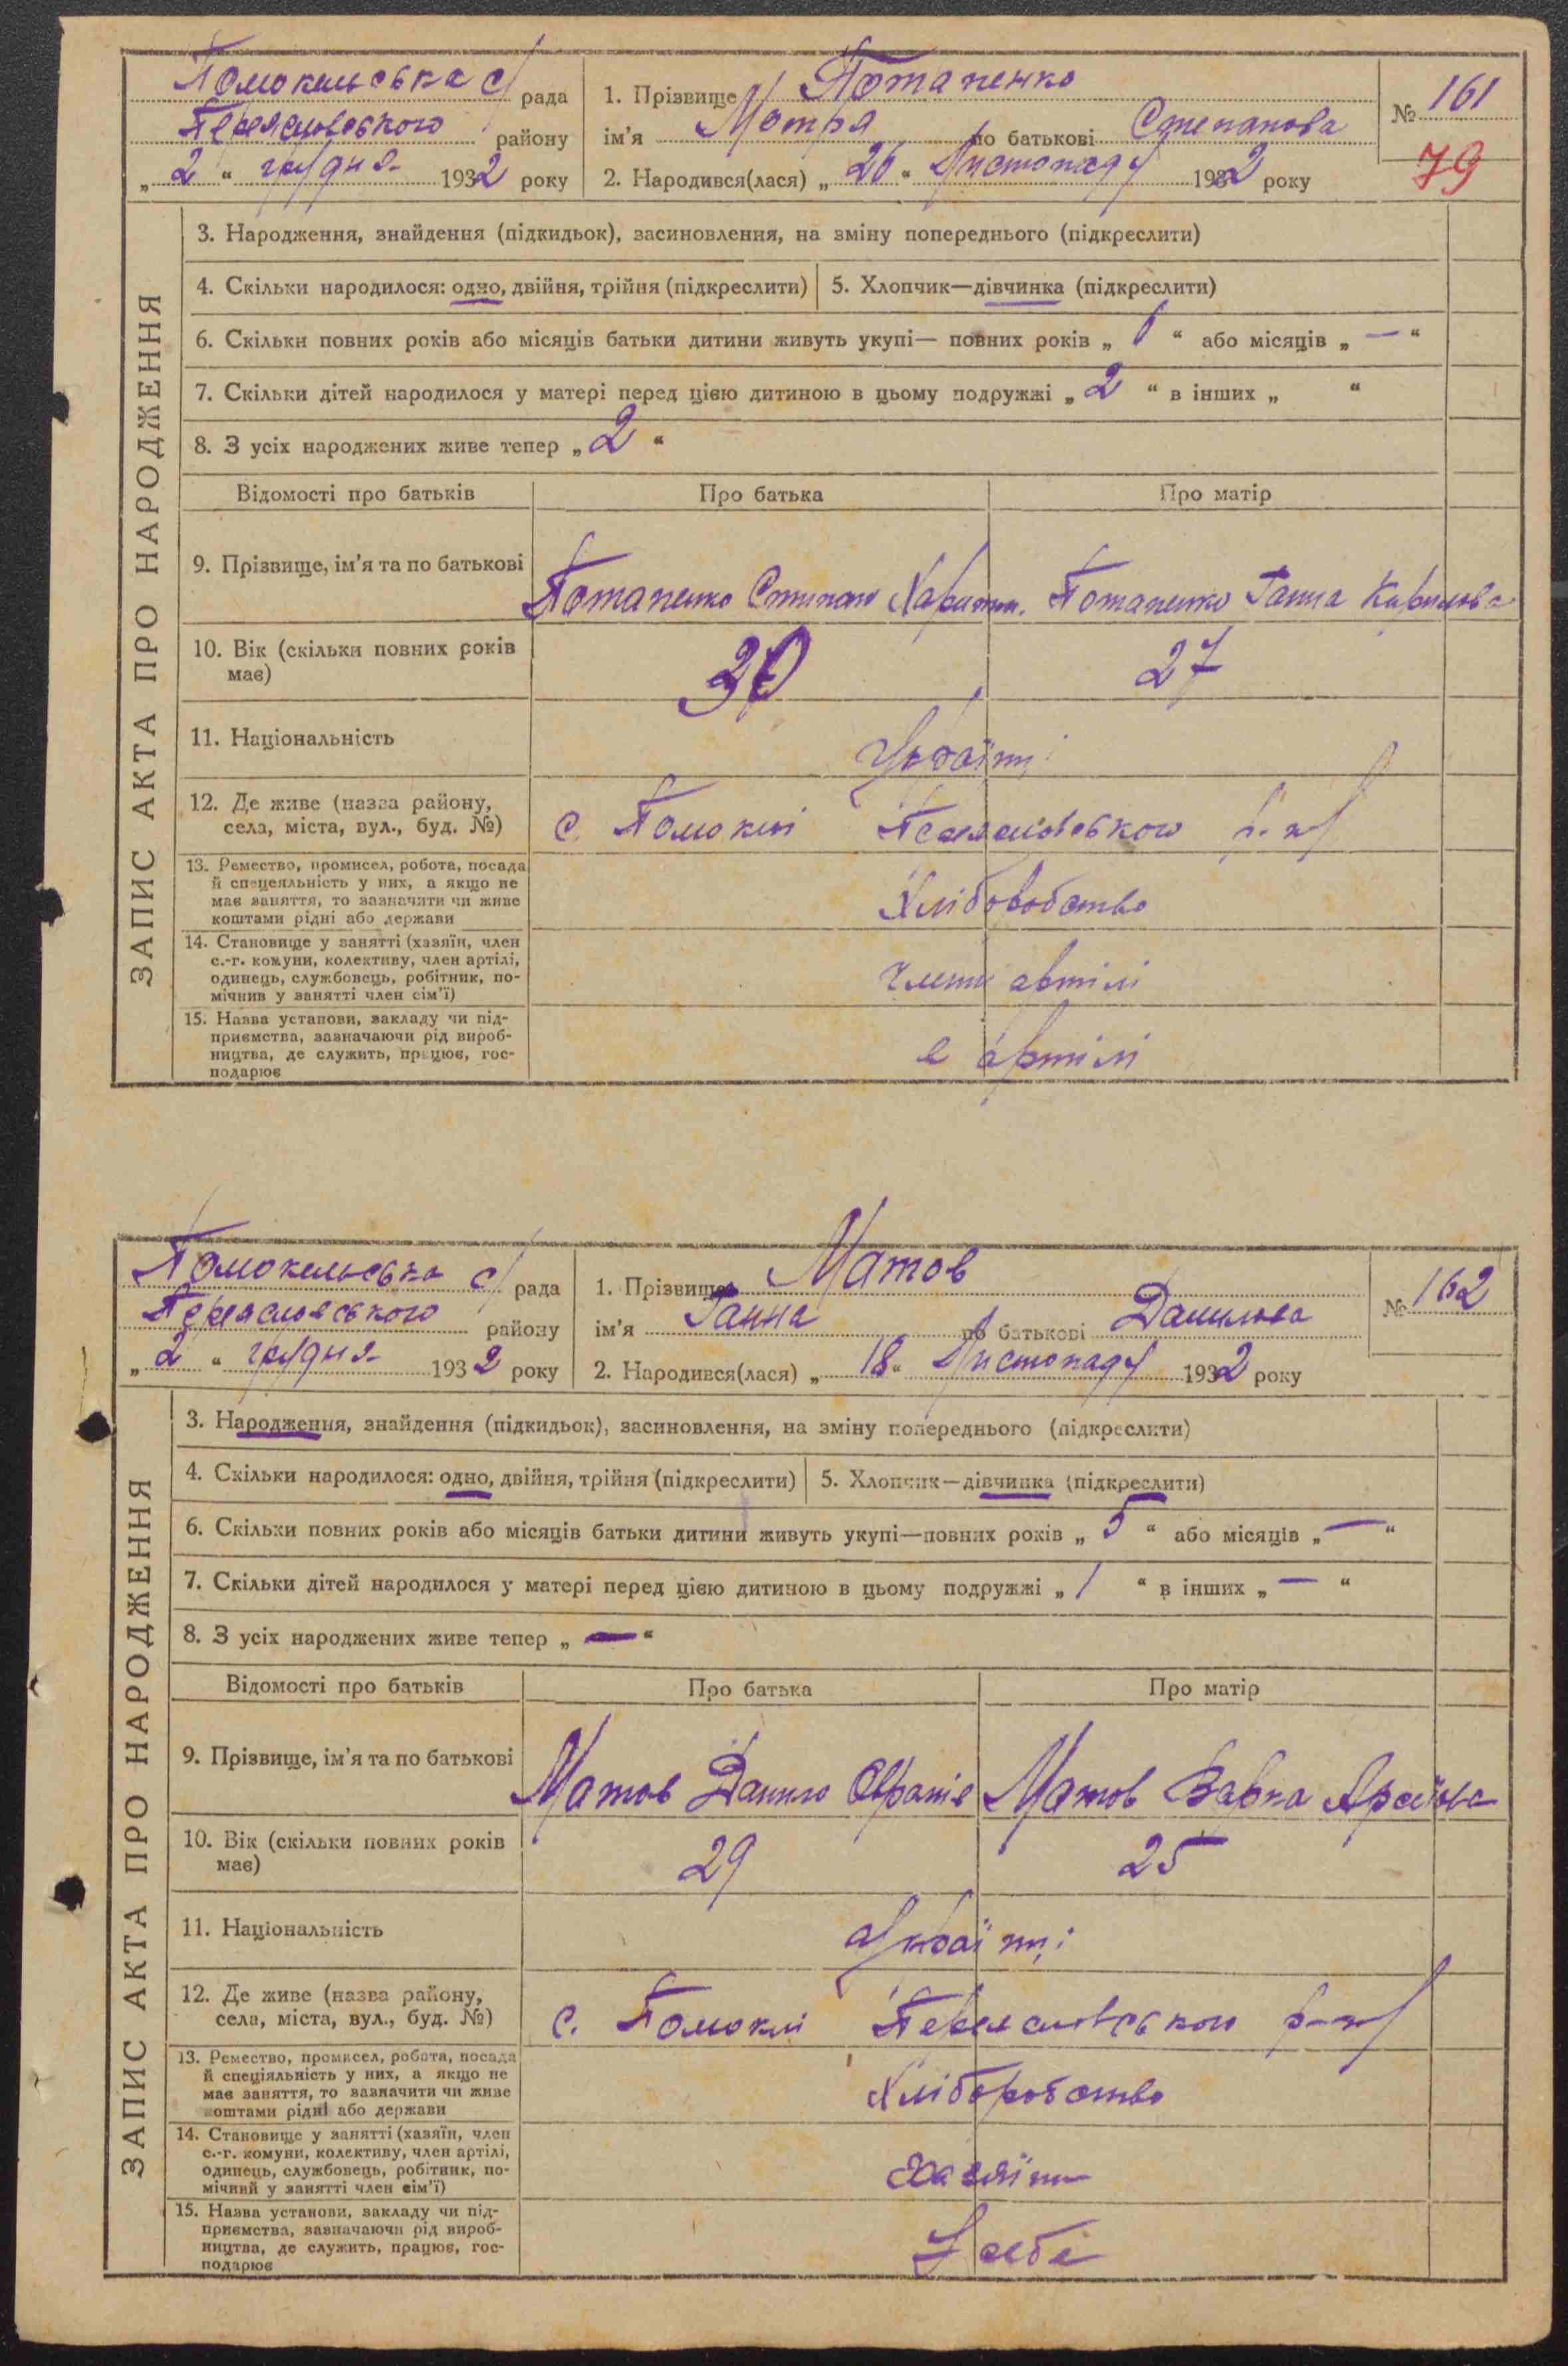 Помокельська с/ рада
Переяславського району
„ 2 “ грудня 1932 року
1. Прізвище Потапенко
ім'я Мотря по батькові Степанова
2. Народився(лася) „ 26 “ Листопаду 1932 року
№ 161
79
ЗАПИС АКТА ПРО НАРОДЖЕННЯ
3. Народження, знайдення (підкидьок), засиновлення, на зміну попереднього (підкреслити)
4. Скільки народилося: одно, двійня, трійня (підкреслити)
5. Хлопчик—дівчинка (підкреслити)
6. Скільки повних років або місяців батьки дитини живуть укупі— повних років „ “ або місяців „ — “
7. Скільки дітей народилося у матері перед цією дитиною в цьому подружжі „ 2 “ в інших „ “
8. З усіх народжених живе тепер „ 2 “
Відомості про батьків
Про батька
Про матір
9. Прізвище, ім'я та по батькові
Потапенко Степан Харитон.
Потапенко Ганна Кирилова
10. Вік (скільки повних років
має)
30
27
11. Національність
Українці
12. Де живе (назва району,
села, міста, вул., буд. №)
с. Помоклі Переяславського р-ну
13. Ремество, промисел, робота, посада
й спецеяльність у них, а якщо не
має заняття, то зазначити чи живе
коштами рідні або держави
Хліборобство
14. Становище у занятті (хазяїн, член
с.-г. комуни, колективу, член артілі,
одинець, службовець, робітник, по-
мічнив у занятті член сім'ї)
член артілі
15. Назва установи, закладу чи під-
приємства, зазначаючи рід вироб-
ництва, де служить, працює, гос-
подарює
в артілі
Помокельська с/ рада
Переяславського району
„ 2 “ грудня 1932 року
1. Прізвище Матов
ім'я Ганна по батькові Данилова
2. Народився(лася) „ 18 “ Листопаду 1932 року
№ 162
ЗАПИС АКТА ПРО НАРОДЖЕННЯ
3. Народження, знайдення (підкидьок), засиновлення, на зміну попереднього (підкреслити)
4. Скільки народилося: одно, двійня, трійня (підкреслити)
5. Хлопчик—дівчинка (підкреслити)
6. Скільки повних років або місяців батьки дитини живуть укупі—повних років „ 5 “ або місяців „ — “
7. Скільки дітей народилося у матері перед цією дитиною в цьому подружжі „ 1 “ в інших „ — “
8. З усіх народжених живе тепер „ — “
Відомості про батьків
Про батька
Про матір
9. Прізвище, ім'я та по батькові
Матов Данило
Матов Варка Арсеїова
10. Вік (скільки повних років
має)
29
25
11. Національність
Українці
12. Де живе (назва району,
села, міста, вул., буд. №)
с. Помоклі Переяславського р-ну
13. Ремество, промисел, робота, посада
й спеціяльність у них, а якщо не
має заняття, то зазначити чи живе
коштами рідні або держави
Хліборобство
14. Становище у занятті (хазяїн, член
с.-г. комуни, колективу, член артілі,
одинець, службовець, робітник, по-
мічний у занятті член сім'ї)
Хазяїн
15. Назва установи, закладу чи під-
приємства, зазначаючи рід вироб-
ництва, де служить, працює, гос-
подарює
У себе